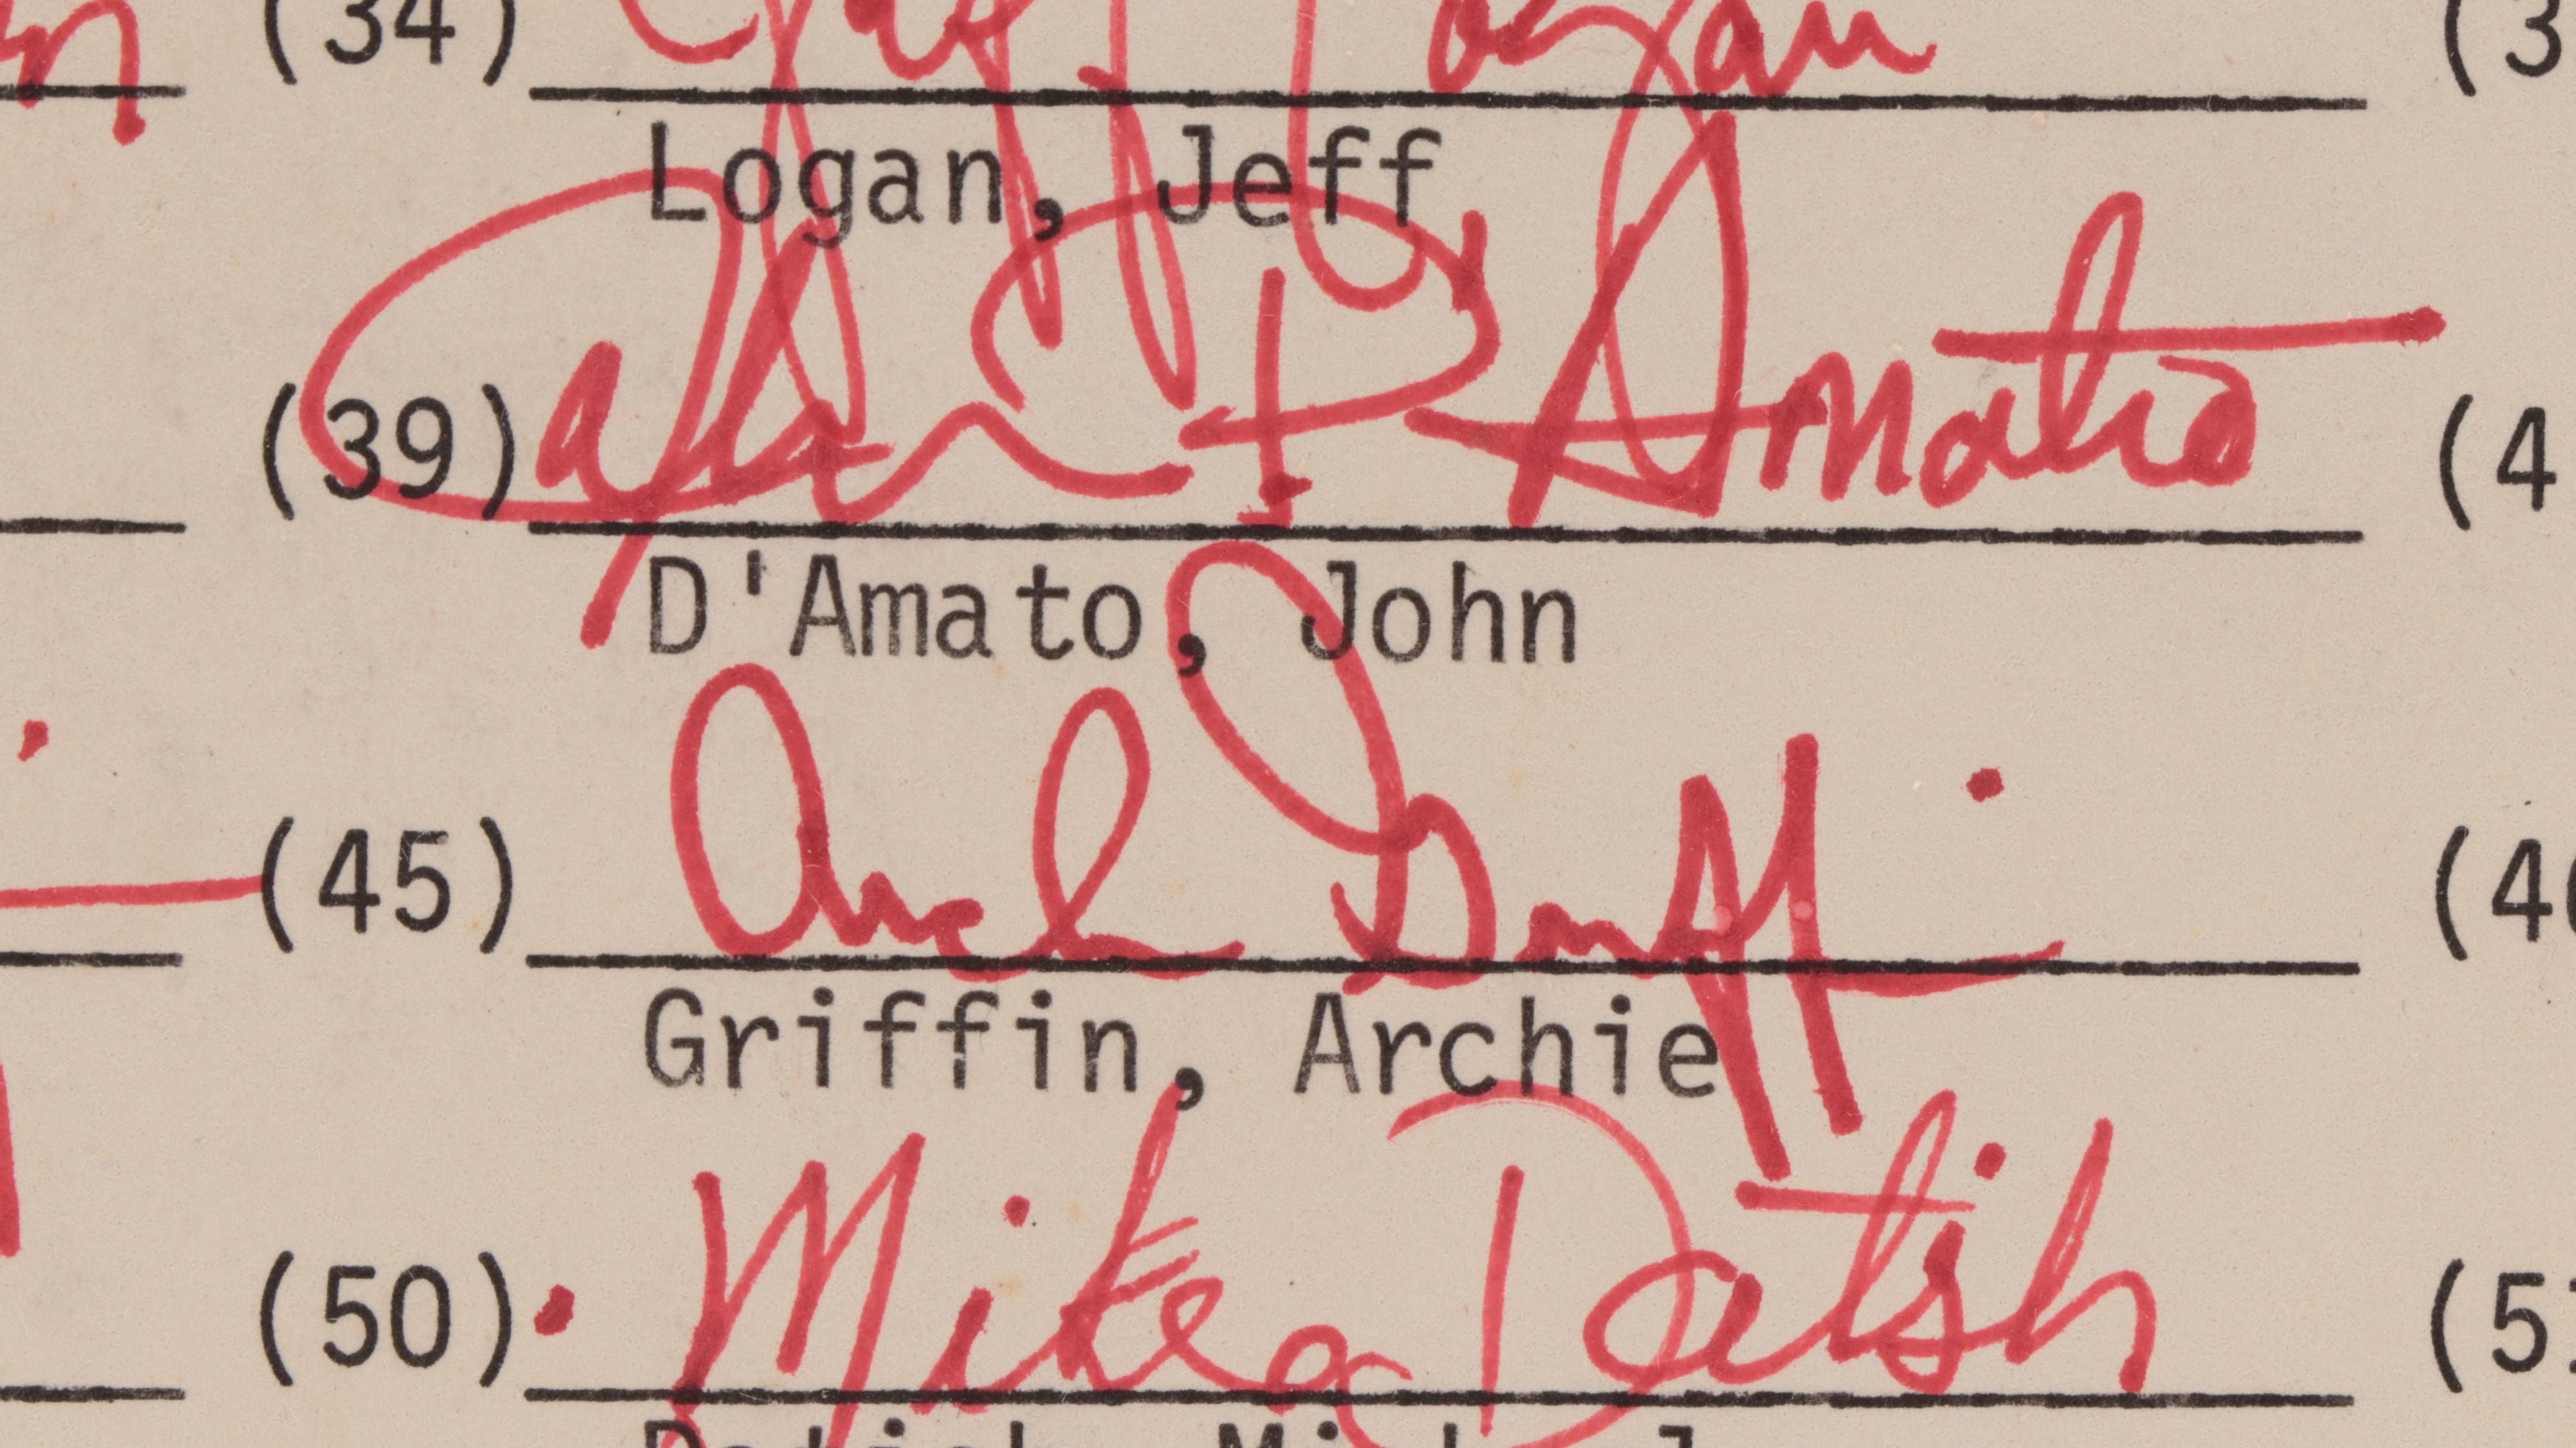 (34) Jeff Logan (3
Logan, Jeff
(39) John P. D'Amato (4
D'Amato, John
(45) Archie Griffin (4
Griffin, Archie
(50) Mike Datish (5
Michael